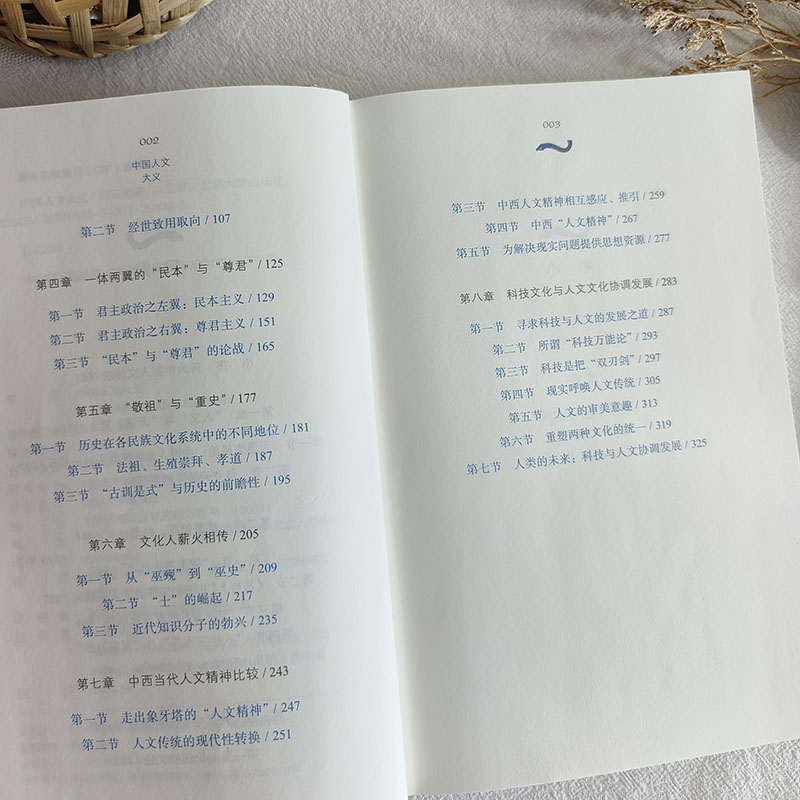 002
中国人文
大义
第二节 经世致用取向 / 107
第四章 一体两翼的“民本”与“尊君” / 125
第一节 君主政治之左翼：民本主义 / 129
第二节 君主政治之右翼：尊君主义 / 151
第三节 “民本”与“尊君”的论战 / 165
第五章 “敬祖”与“重史” / 177
第一节 历史在各民族文化系统中的不同地位 / 181
第二节 法祖、生殖崇拜、孝道 / 187
第三节 “古训是式”与历史的前瞻性 / 195
第六章 文化人薪火相传 / 205
第一节 从“巫觋”到“巫史” / 209
第二节 “士”的崛起 / 217
第三节 近代知识分子的勃兴 / 235
第七章 中西当代人文精神比较 / 243
第一节 走出象牙塔的“人文精神” / 247
第二节 人文传统的现代性转换 / 251
003
第三节 中西人文精神相互感应、推引 / 259
第四节 中西“人文精神” / 267
第五节 为解决现实问题提供思想资源 / 277
第八章 科技文化与人文文化协调发展 / 283
第一节 寻求科技与人文的发展之道 / 287
第二节 所谓“科技万能论” / 293
第三节 科技是把“双刃剑” / 297
第四节 现实呼唤人文传统 / 305
第五节 人文的审美意趣 / 313
第六节 重塑两种文化的统一 / 319
第七节 人类的未来：科技与人文协调发展 / 325